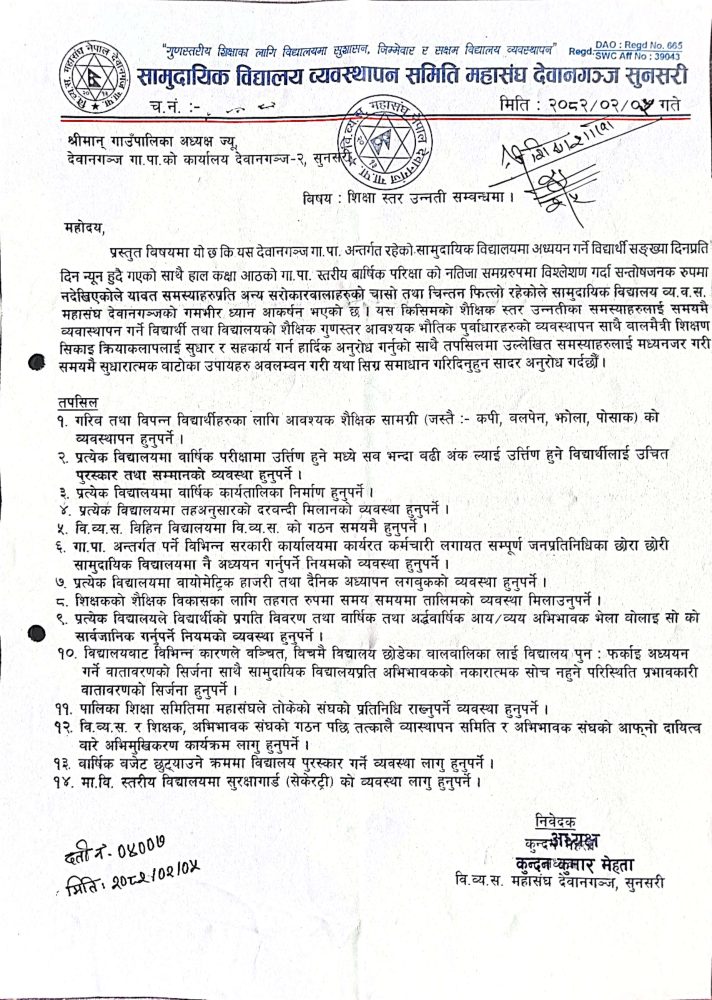 "गुणस्तरीय शिक्षाका लागि विद्यालयमा सुशासन, जिम्मेवार र सक्षम विद्यालय व्यवस्थापन"
DAO : Regd No. 665
Regd. SWC Aff No : 39043
सामुदायिक विद्यालय व्यवस्थापन समिति महासंघ देवानगञ्ज सुनसरी
च.नं. :-
मिति : २०८२/०२/०५ गते
श्रीमान् गाउँपालिका अध्यक्ष ज्यू,
देवानगञ्ज गा.पा.को कार्यालय देवानगञ्ज-२, सुनसरी
विषय : शिक्षा स्तर उन्नती सम्बन्धमा ।
महोदय,
प्रस्तुत विषयमा यो छ कि यस देवानगञ्ज गा.पा. अन्तर्गत रहेको सामुदायिक विद्यालयमा अध्ययन गर्ने विद्यार्थी सङ्ख्या दिनप्रति
दिन न्यून हुदै गएको साथै हाल कक्षा आठको गा.पा. स्तरीय बार्षिक परिक्षा को नतिजा समग्ररुपमा विश्लेशण गर्दा सन्तोषजनक रुपमा
नदेखिएकोले यावत समस्याहरुप्रति अन्य सरोकारवालाहरुको चासो तथा चिन्तन फित्लो रहेकोले सामुदायिक विद्यालय व्य.व.स.
महासंघ देवानगञ्जको गमभीर ध्यान आकर्षन भएको छ । यस किसिमको शैक्षिक स्तर उन्नतीका समस्याहरुलाई समयमै
व्यवास्थापन गर्ने विद्यार्थी तथा विद्यालयको शैक्षिक गुणस्तर आवश्यक भौतिक पुर्वाधारहरुको व्यवस्थापन साथै वालमैत्री शिक्षण
सिकाइ क्रियाकलापलाई सुधार र सहकार्य गर्न हार्दिक अनुरोध गर्नुको साथै तपसिलमा उल्लेखित समस्याहरुलाई मध्यनजर गरी
समयमै सुधारात्मक वाटोका उपायहरु अवलम्वन गरी यथा सिग्र समाधान गरिदिनुहुन सादर अनुरोध गर्दछौं ।
तपसिल
१. गरिव तथा विपन्न विद्यार्थीहरुका लागि आवश्यक शैक्षिक सामग्री (जस्तै :- कपी, वलपेन, झोला, पोसाक) को
व्यवस्थापन हुनुपर्ने ।
२. प्रत्येक विद्यालयमा वार्षिक परीक्षामा उर्त्तिण हुने मध्ये सव भन्दा वढी अंक ल्याई उर्त्तिण हुने विद्यार्थीलाई उचित
पुरस्कार तथा सम्मानको व्यवस्था हुनुपर्ने ।
३. प्रत्येक विद्यालयमा वार्षिक कार्यतालिका निर्माण हुनुपर्ने ।
४. प्रत्येक विद्यालयमा तहअनुसारको दरवन्दी मिलानको व्यवस्था हुनुपर्ने ।
५. वि.व्य.स. विहिन विद्यालयमा वि.व्य.स. को गठन समयमै हुनुपर्ने ।
६. गा.पा. अन्तर्गत पर्ने विभिन्न सरकारी कार्यालयमा कार्यरत कर्मचारी लगायत सम्पूर्ण जनप्रतिनिधिका छोरा छोरी
सामुदायिक विद्यालयमा नै अध्ययन गर्नुपर्ने नियमको व्यवस्था हुनुपर्ने ।
७. प्रत्येक विद्यालयमा वायोमेट्रिक हाजरी तथा दैनिक अध्यापन लगवुकको व्यवस्था हुनुपर्ने ।
८. शिक्षकको शैक्षिक विकासका लागि तहगत रुपमा समय समयमा तालिमको व्यवस्था मिलाउनुपर्ने ।
९. प्रत्येक विद्यालयले विद्यार्थीको प्रगति विवरण तथा वार्षिक तथा अर्द्धवार्षिक आय/व्यय अभिभावक भेला वोलाइ सो को
सार्वजानिक गर्नुपर्ने नियमको व्यवस्था हुनुपर्ने ।
१०. विद्यालयवाट विभिन्न कारणले वञ्चित, विचमै विद्यालय छोडेका वालवालिका लाई विद्यालय पुन : फर्काइ अध्ययन
गर्ने वातावरणको सिर्जना साथै सामुदायिक विद्यालयप्रति अभिभावकको नकारात्मक सोच नहुने परिस्थिति प्रभावकारी
वातावरणको सिर्जना हुनुपर्ने ।
११. पालिका शिक्षा समितिमा महासंघले तोकेको संघको प्रतिनिधि राख्नुपर्ने व्यवस्था हुनुपर्ने ।
१२. वि.व्य.स. र शिक्षक, अभिभावक संघको गठन पछि तत्कालै व्यास्थापन समिति र अभिभावक संघको आफ्नो दायित्व
वारे अभिमुखिकरण कार्यक्रम लागु हुनुपर्ने ।
१३. वार्षिक वजेट छुट्याउने क्रममा विद्यालय पुरस्कार गर्ने व्यवस्था लागु हुनुपर्ने ।
१४. मा.वि. स्तरीय विद्यालयमा सुरक्षागार्ड (सेकेरट्री) को व्यवस्था लागु हुनुपर्ने ।
निवेदक
अध्यक्ष
कुन्दन कुमार मेहता
वि.व्य.स. महासंघ देवानगञ्ज, सुनसरी
दर्ता नं. ०४००७
मिति: २०८२/०२/०५